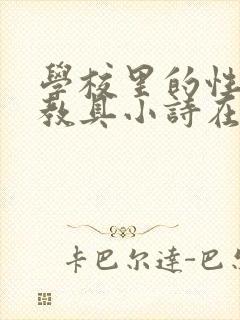 學校里的性
教具小詩在
卡巴尔達-巴尔